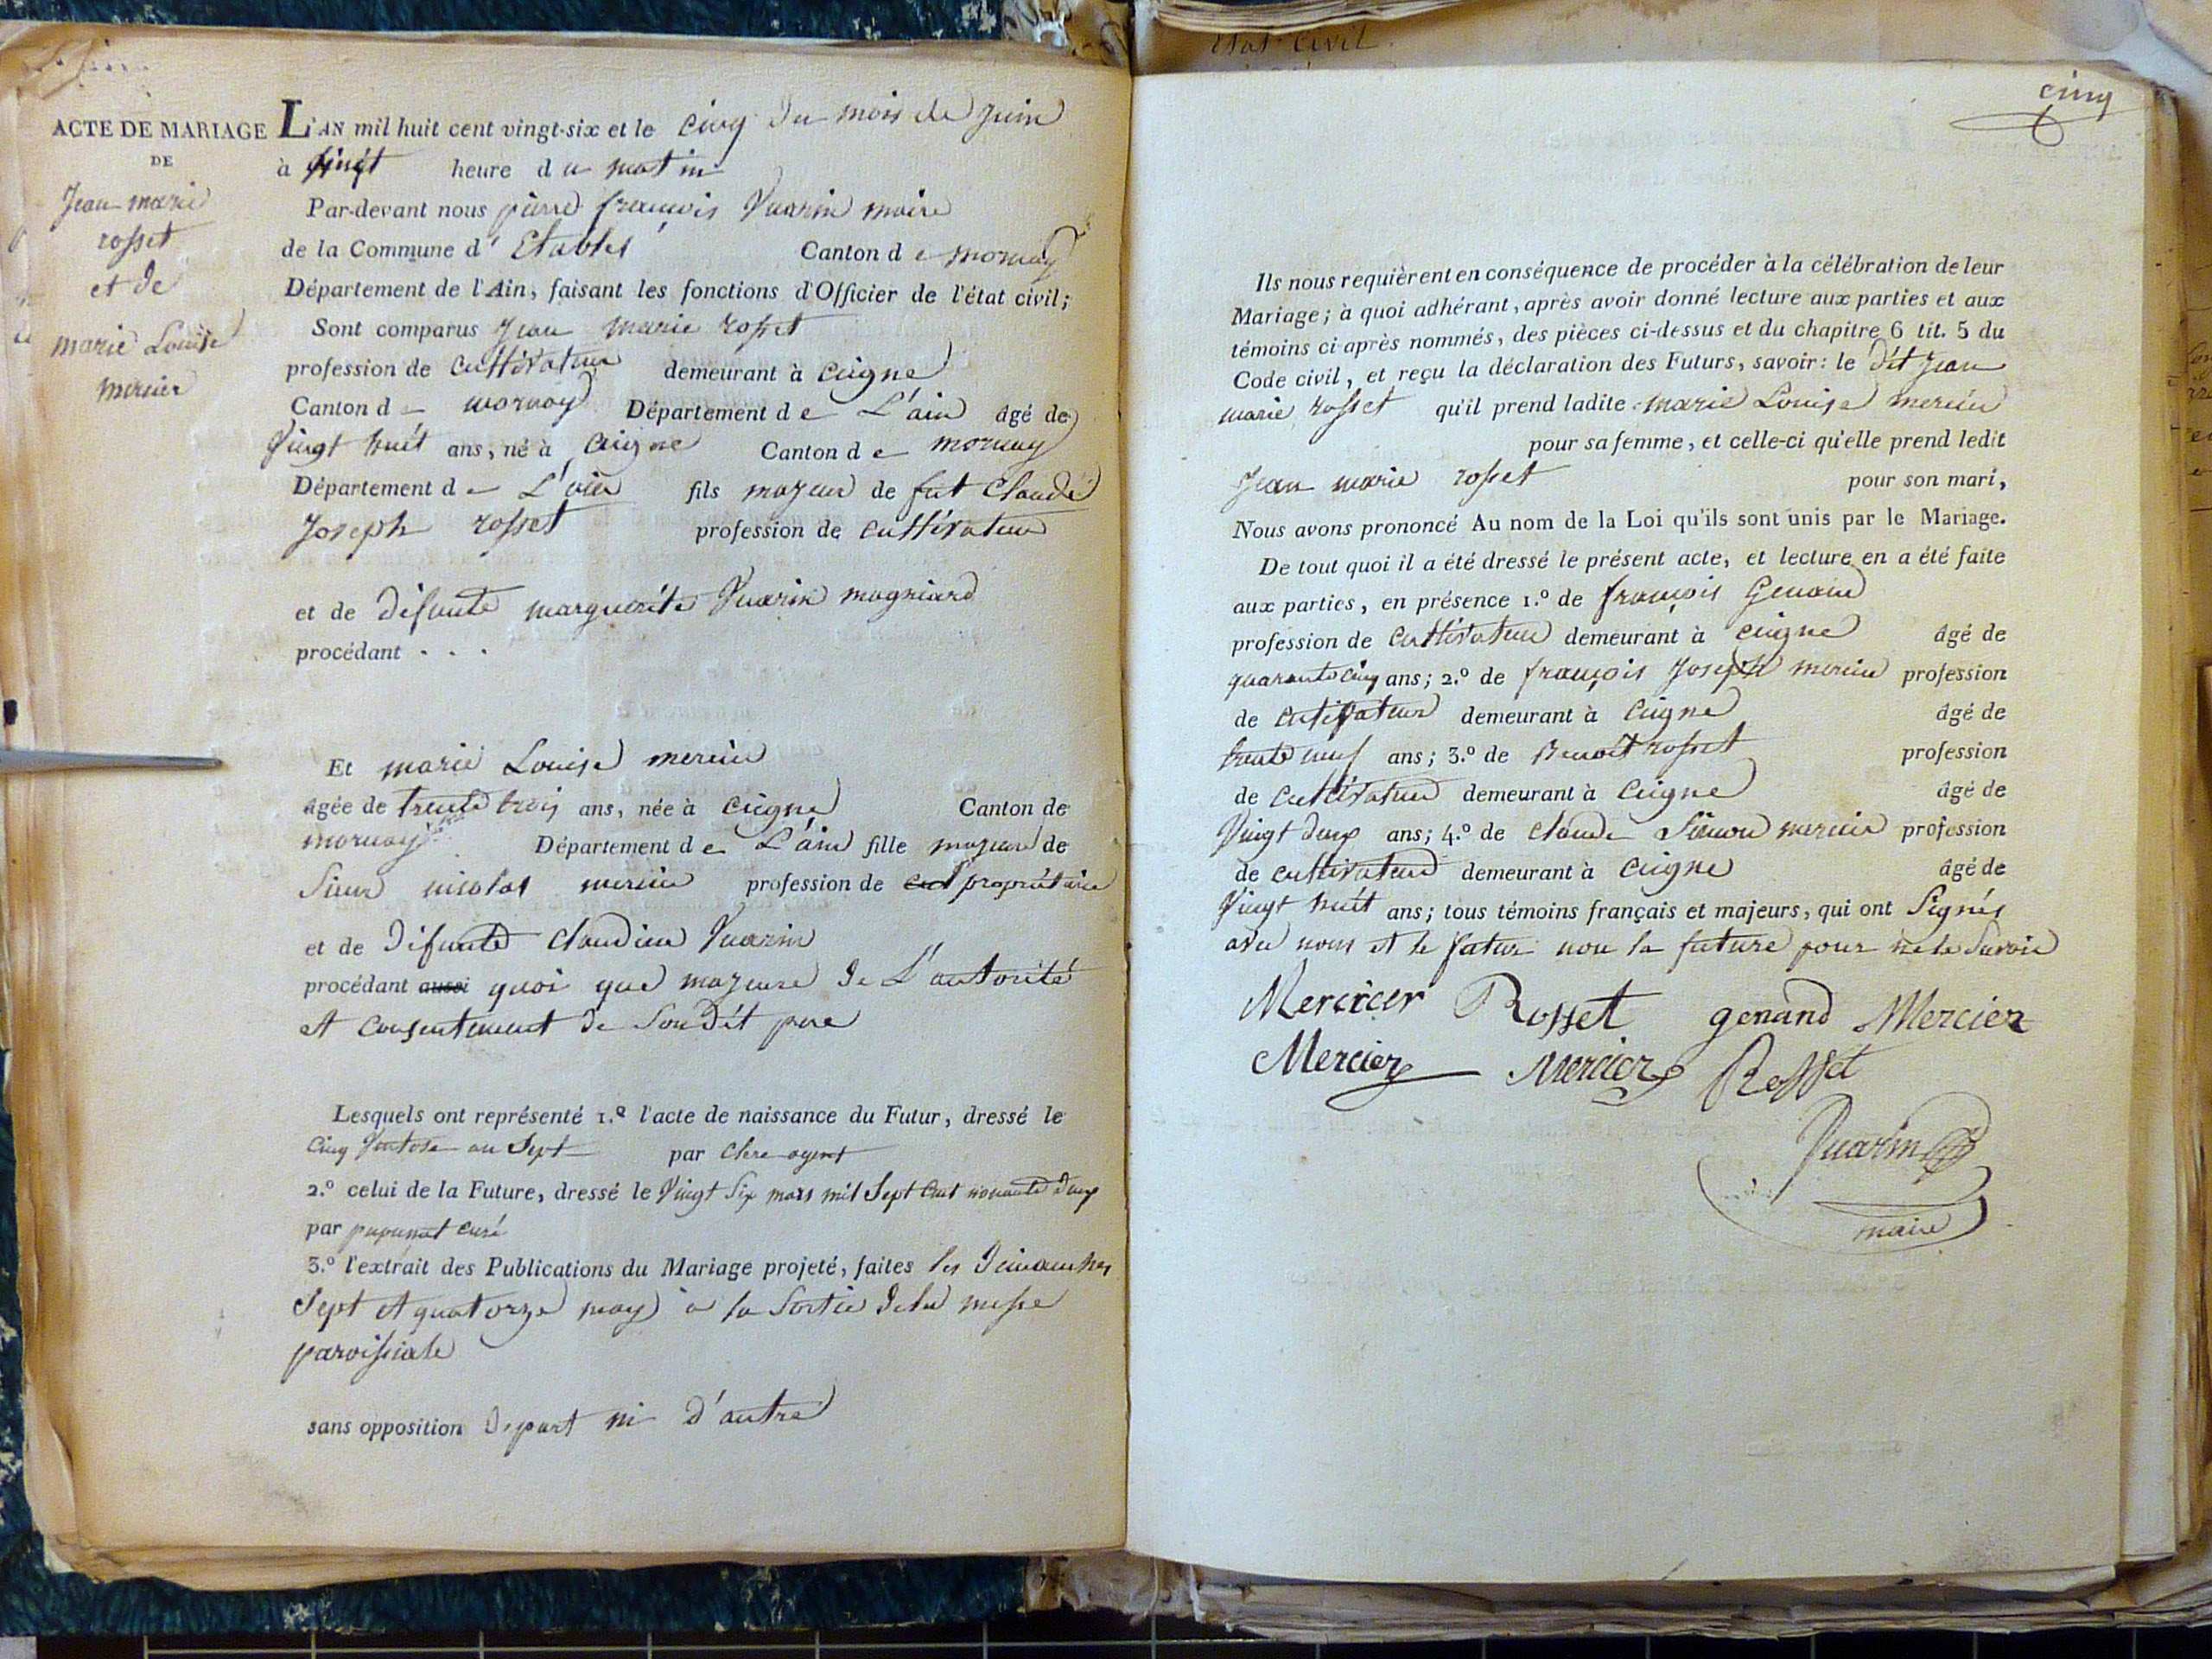 ACTE DE MARIAGE
DE
Jean marie
rosset
et de
marie Louise
mercier
L'AN mil huit cent vingt-six et le cinq du mois de Juin
à heure du matin
Par-devant nous pierre françois Vuarin maire
de la Commune d'Etables Canton de mornay
Département de l'Ain, faisant les fonctions d'Officier de l'état civil;
Sont comparus Jean marie rosset
profession de cultivateur demeurant à ceigne
Canton de mornay Département de L'ain âgé de
Vingt huit ans, né à ceigne Canton de mornay
Département de L'ain fils majeur de fut Claude
Joseph rosset profession de cultivateur
et de défunte marguerite Vuarin magniard
procédant . . .
Et marie Louise mercier
âgée de trente trois ans, née à ceigne Canton de
mornay Département de L'ain fille majeure de
Sieur nicolas mercier profession de propriétaire
et de défunte claudine Vuarin
procédant aussi quoi que majeure de L'autorité
et consentement de son dit pere
Lesquels ont représenté 1.º l'acte de naissance du Futur, dressé le
cinq Ventose an Sept par Clerc agent
2.º celui de la Future, dressé le Vingt Six mars mil Sept cent nonante deux
par curé
3.º l'extrait des Publications du Mariage projeté, faites les dimanches
Sept et quatorze may à la Sortie de la messe
paroissiale
sans opposition de part ni d'autre
état civil
cinq
Ils nous requièrent en conséquence de procéder à la célébration de leur
Mariage; à quoi adhérant, après avoir donné lecture aux parties et aux
témoins ci-après nommés, des pièces ci-dessus et du chapitre 6 tit. 5 du
Code civil, et reçu la déclaration des Futurs, savoir: le dit Jean
marie rosset qu'il prend ladite marie Louise mercier
pour sa femme, et celle-ci qu'elle prend ledit
Jean marie rosset pour son mari,
Nous avons prononcé Au nom de la Loi qu'ils sont unis par le Mariage.
De tout quoi il a été dressé le présent acte, et lecture en a été faite
aux parties, en présence 1.º de françois Genand
profession de cultivateur demeurant à ceigne âgé de
quarante cinq ans; 2.º de françois Joseph mercier profession
de cultivateur demeurant à ceigne âgé de
trente neuf ans; 3.º de Benoit rosset profession
de cultivateur demeurant à ceigne âgé de
Vingt deux ans; 4.º de claude Simon mercier profession
de cultivateur demeurant à ceigne âgé de
Vingt huit ans; tous témoins français et majeurs, qui ont Signés
avec nous et le futur non la future pour ne le Savoir
Mercicer Rosset genand Mercier
Mercier Mercier Rosset
Vuarin
maire